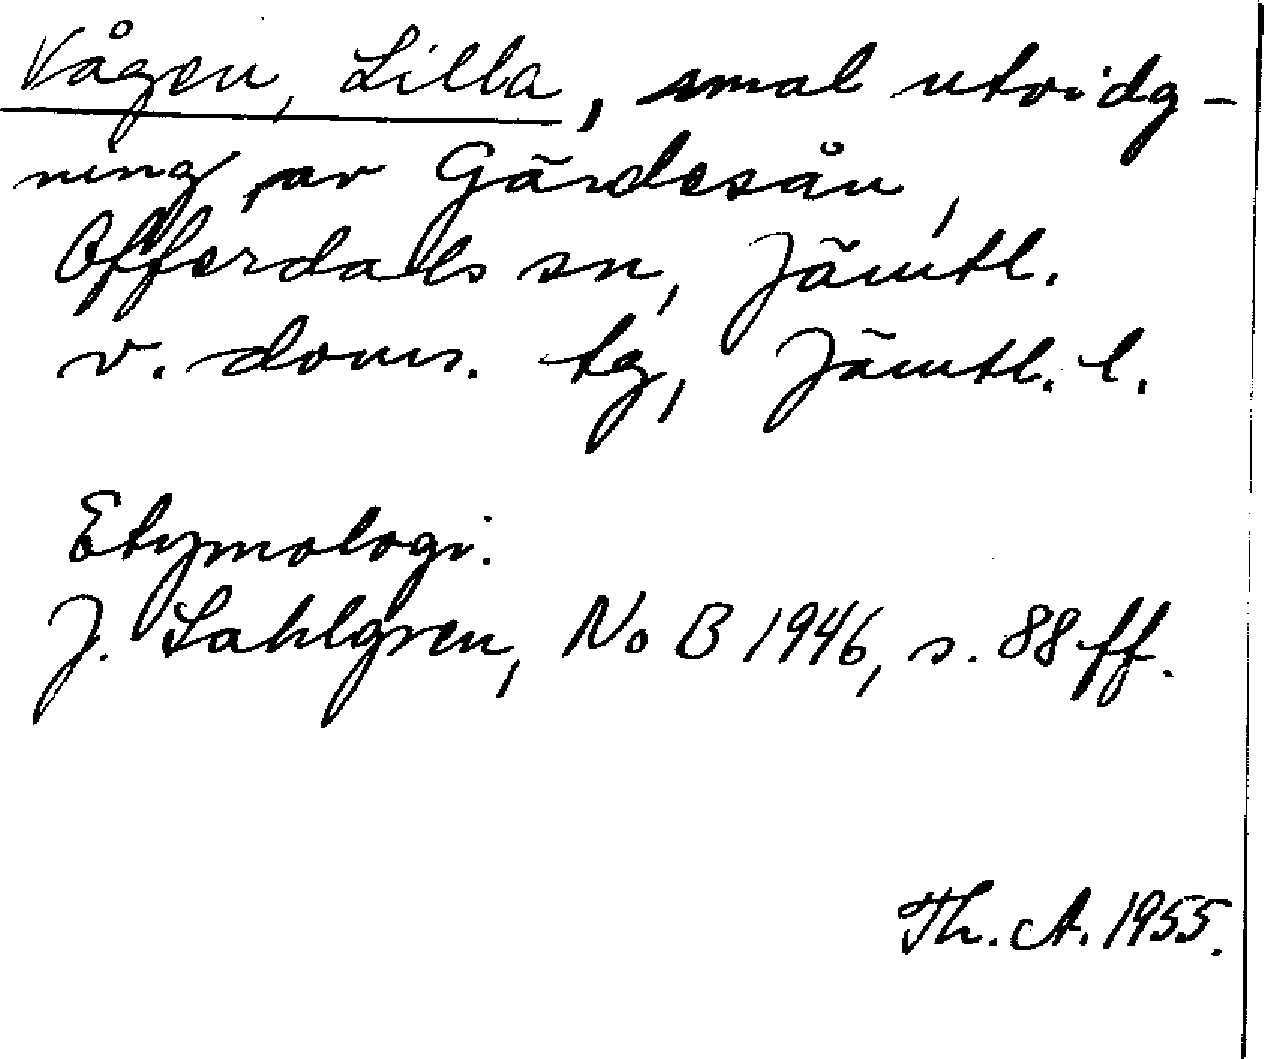 Vågen, Lilla, smal utvidg-
ning av Gärdesån,
Offerdals sn, Jämtl.
v. doms. tg, Jämtl. l.
Etymologi.
J. Sahlgren, No B 1946, s. 88 ff.
Th. A. 1955.